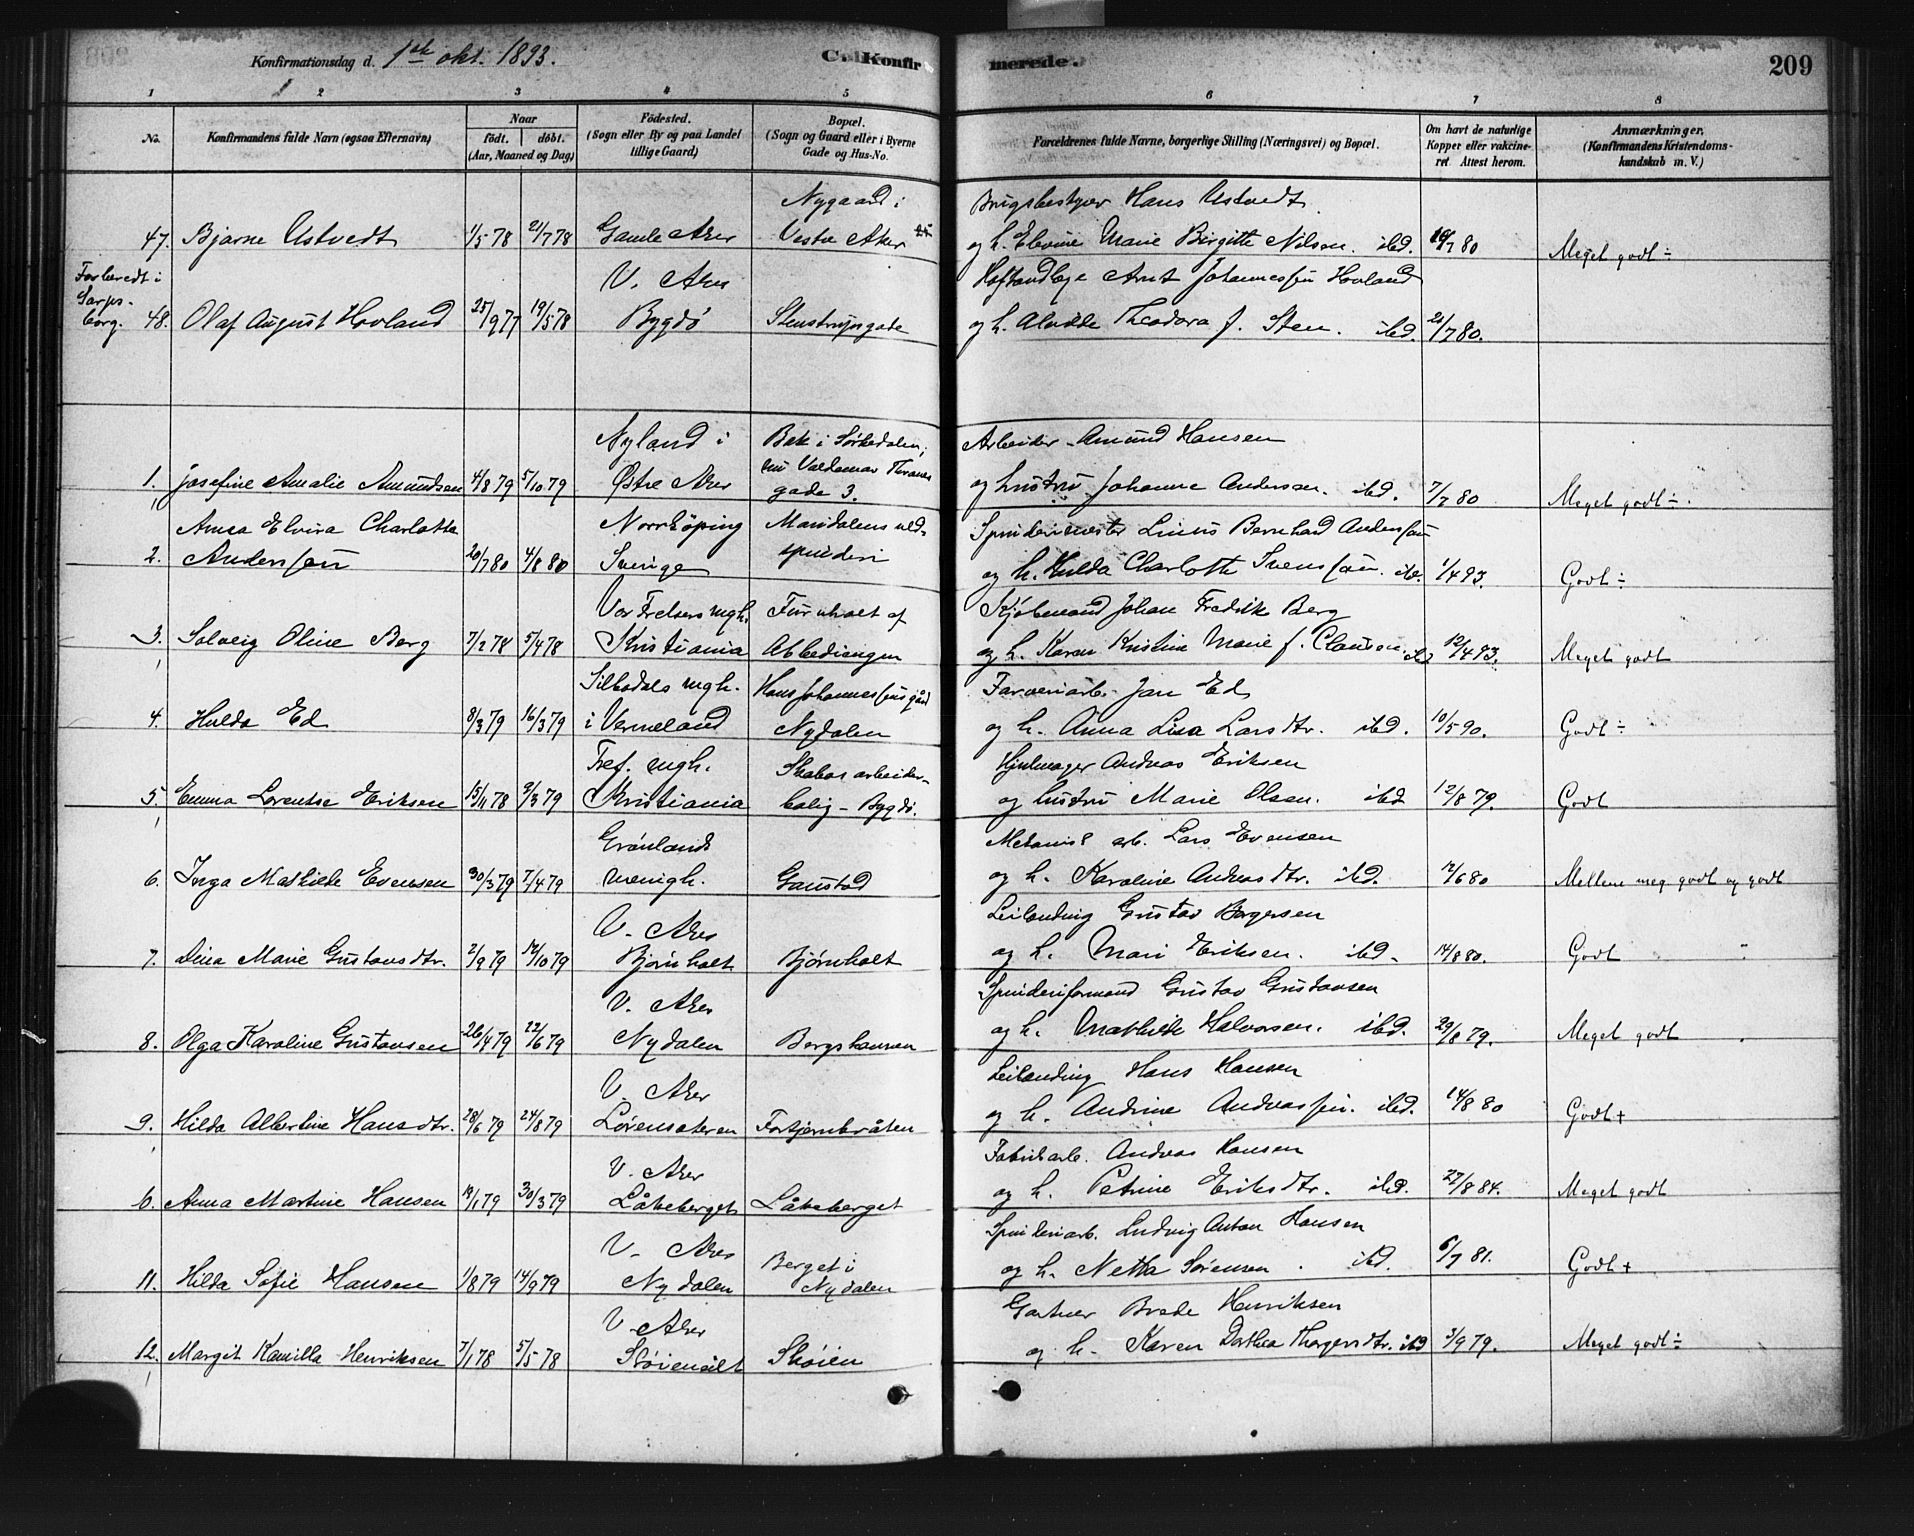 Konfirmationsdag d. 1ste okt. 1893. C. Konfirmerede. 209
1 2 3 4 5 6 7 8
No. Konfirmandens fulde Navn (ogsaa Efternavn) Naar født. døbt. (Aar, Maaned og Dag) Födested. (Sogn eller By og paa Landet tillige Gaard) Bopæl. (Sogn og Gaard eller i Byerne Gade og Hus-No. Forældrenes fulde Navne, borgerlige Stilling (Næringsvei) og Bopæl. Om havt de naturlige Kopper eller vakcineret. Attest herom. Anmærkninger. (Konfirmandens Kristendomskundskab m. V.)
Nygaard i Brugsbestyrer Hans Ustvedt
47. Bjarne Ustvedt 1/5 78 21/7 78 Gamle Aker Vestre Aker og h. Elevine Marie Birgitte Nilsen. ibd. 19/7 80 Meget godt ÷
Forberedt i Sarpsborg. V. Aker Arnt Johannessen Hovland
48. Olaf August Hovland 25/9 77 19/5 78 Bygdö Stenstrupsgade og h. Alvilde Theodora f. Sten. ibd. 21/7 80.
Nyland i Bak i Sörkedalen, Arbeider Amund Hansen
nu Valdemar Thranes
1. Josefine Amalie Amundsen 4/8 79 5/10 79 Østre Aker gade 3. og hustru Johanne Andersen. ibd. 7/7 80 Meget godt ÷.
Anna Elvira Charlotta Norrköping Maridalens uld- Spinderimester Linus Bernhard Andersson
2. Andersson 20/7 80 4/8 80 Sverige spinderi og h. Hulda Charlotte Svensson. ibd. 1/4 93. Godt ÷
Vor Frelsers mgh. Furuholt af Kjøbmand Johan Fredrik Berg
3. Solveig Oline Berg 7/2 78 5/4 78 Kristiania Abbediengen og h. Karen Kristine Marie f. Clausen. ibd 12/4 93. Meget godt
Silbodals mgh. Hans Johannessens gård Farveriarb. Jan Ed
4. Hulda Ed 8/3 79 16/3 79 i Vermeland Nydalen og h. Anna Lisa Larsdtr. ibd. 10/5 90. Godt ÷
Tref. mgh. Skabos arbeider- Hjulmager Andreas Eriksen
5. Emma Lorentse Eriksen 15/11 78 2/3 79 Kristiania bolig - Bygdö. og hustru Marie Olsen. ibd 12/8 79. Godt
Grönlands Mekanisk arb. Lars Evensen
6. Inga Mathilde Evensen 30/3 79 7/4 79 menigh. Gaustad og h. Karoline Andreasdtr. ibd. 12/6 80 Mellem meg godt og godt
V. Aker Leilending Gustav Bergersen
7. Dina Marie Gustavsdtr. 2/9 79 12/10 79 Bjørnholt Bjørnholt og h. Mari Eriksen. ibd. 14/8 80. Godt
V. Aker Spinderiformand Gustav Gustavsen
8. Olga Karoline Gustavsen 26/4 79 22/6 79 Nydalen Bergshausen og h. Mathilde Halvorsen. ibd. 29/8 79. Meget godt
V. Aker Leilending Hans Hansen
9. Hilda Albertine Hansdtr. 28/6 79 24/8 79 Lørenseteren Fortjernbråten og h. Andrine Andreassen. ibd. 14/8 80 Godt +
V. Aker Fabrikarb. Andreas Hansen
10. Anna Martine Hansen 19/1 79 30/3 79 Låkeberget Låkeberget og h. Petrine Eriksdtr. ibd. 27/8 84. Meget godt
V. Aker Berget i Spinderiarb. Ludvig Anton Hansen
11. Hilda Sofie Hansen 1/8 79 14/9 79 Nydalen Nydalen og h. Netta Sørensen. ibd. 6/7 81. Godt +
V. Aker Gartner Brede Henriksen
12. Margit Kamilla Henriksen 7/1 78 5/5 78 Skøien og h. Karen Dorthea Thorgersdtr. ibd 3/9 79. Meget godt ÷